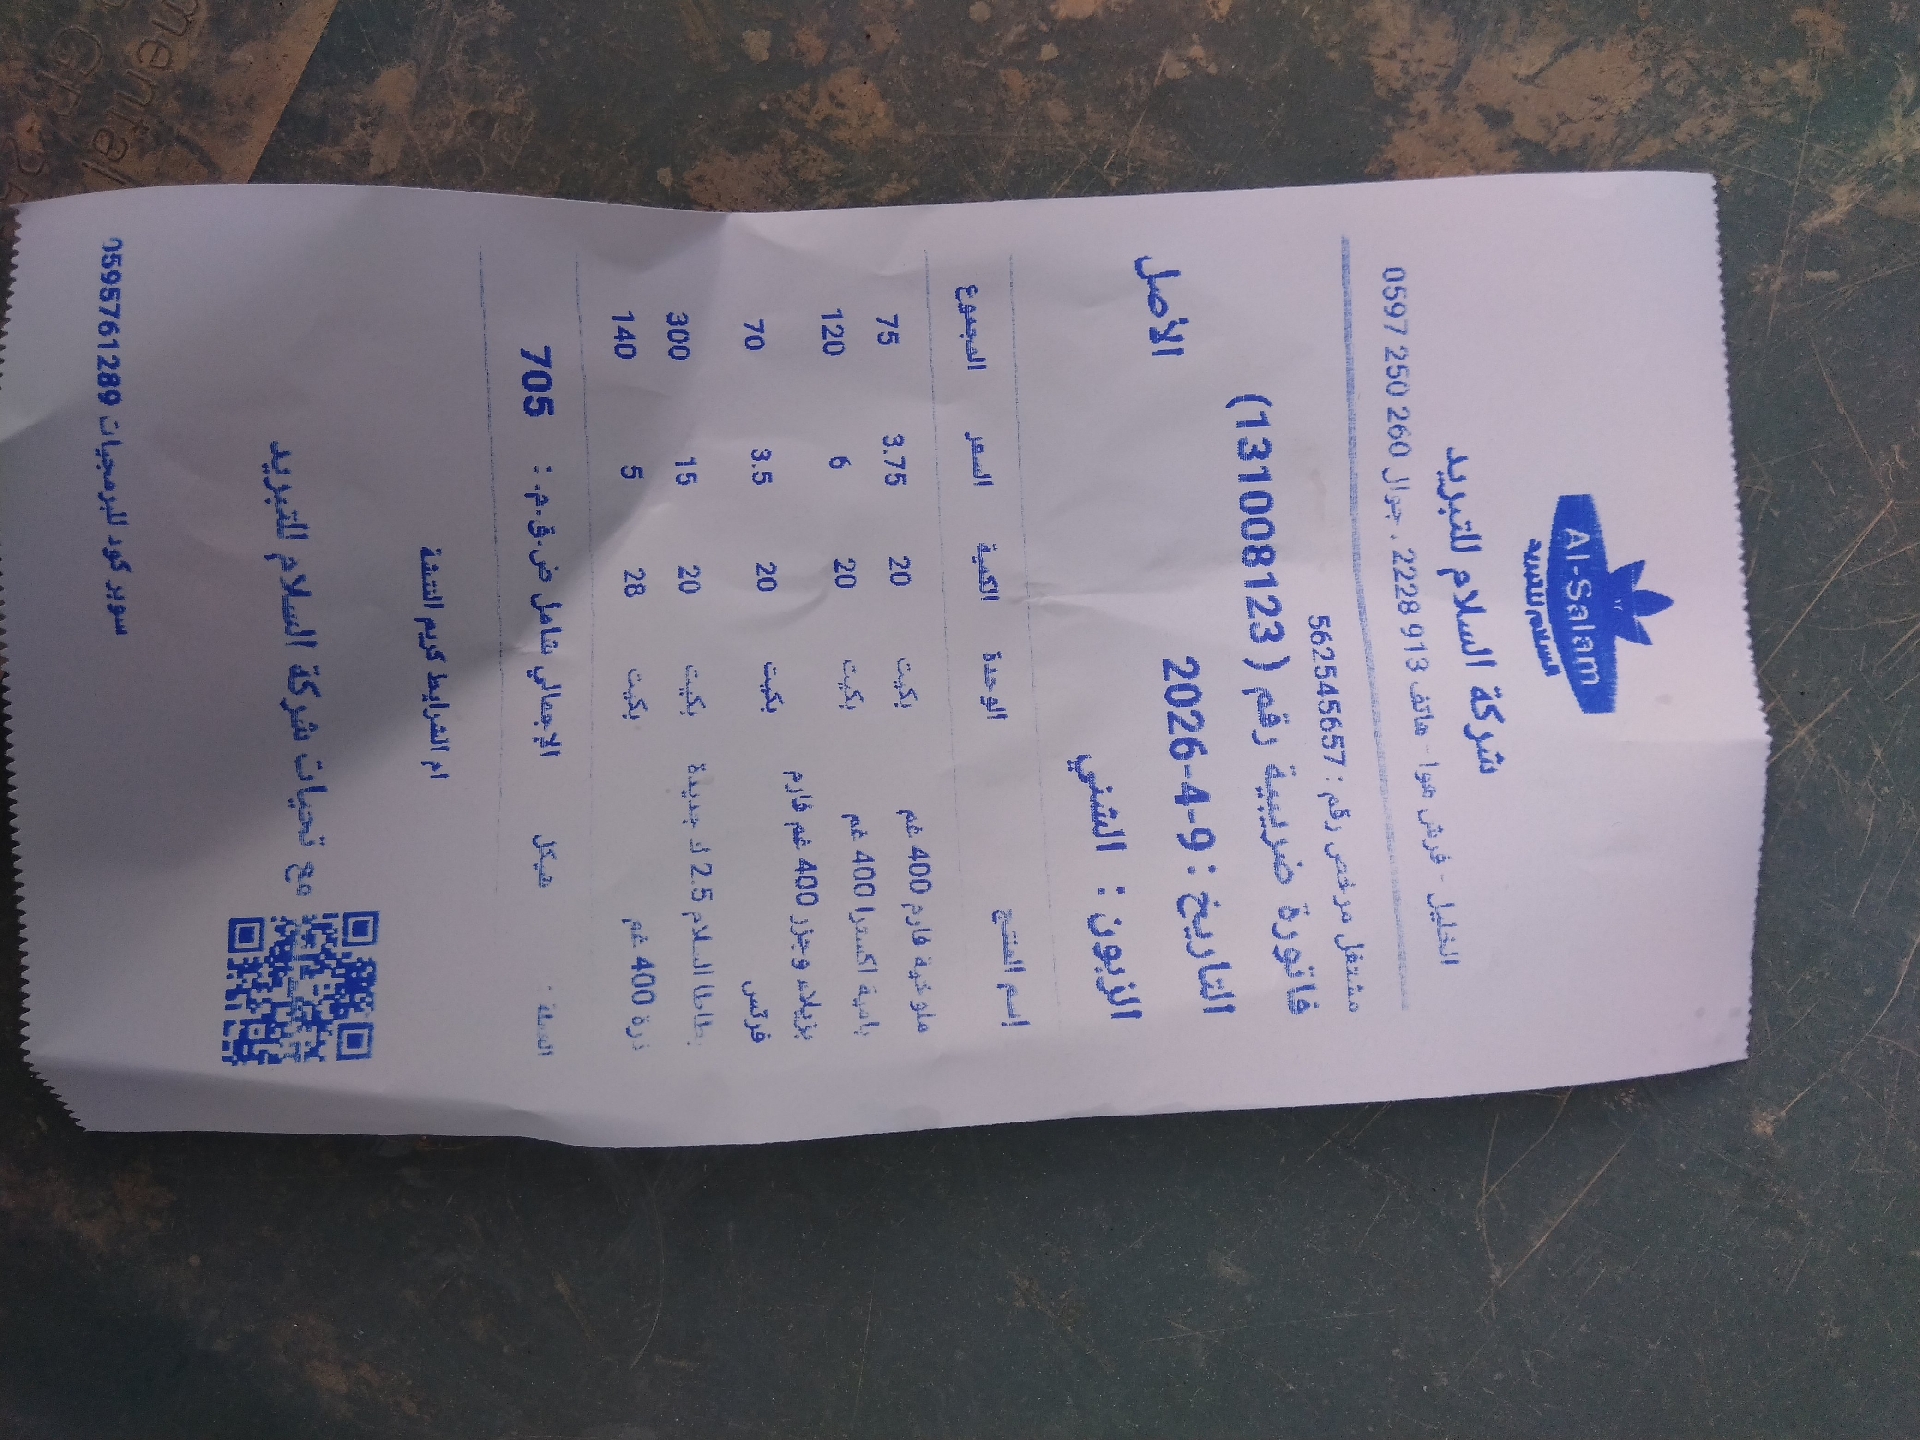 Al-Salam
السلام للتبريد
شركة السلام للتبريد
الخليل - فرش هوا - هاتف 913 2228 . جوال 260 250 0597
مشتغل مرخص رقم : 562545657
فاتورة ضريبية رقم ( 131008123)
التاريخ : 9-4-2026 الأصل
الزبون : الشني
إسم المنتج الوحدة الكمية السعر المجموع
ملوخية فارم 400 غم بكيت 20 3.75 75
بامية اكسترا 400 غم بكيت 20 6 120
بزيلاء وجزر 400 غم فارم
فرتس بكيت 20 3.5 70
بطاطا السلام 2.5 ك جديدة بكيت 20 15 300
ذرة 400 غم بكيت 28 5 140
العملة : شيكل الإجمالي شامل ض.ق.م. : 705
ام الشرايط كريم النتشة
مع تحيات شركة السلام للتبريد
سوبر كود للبرمجيات 0595761289